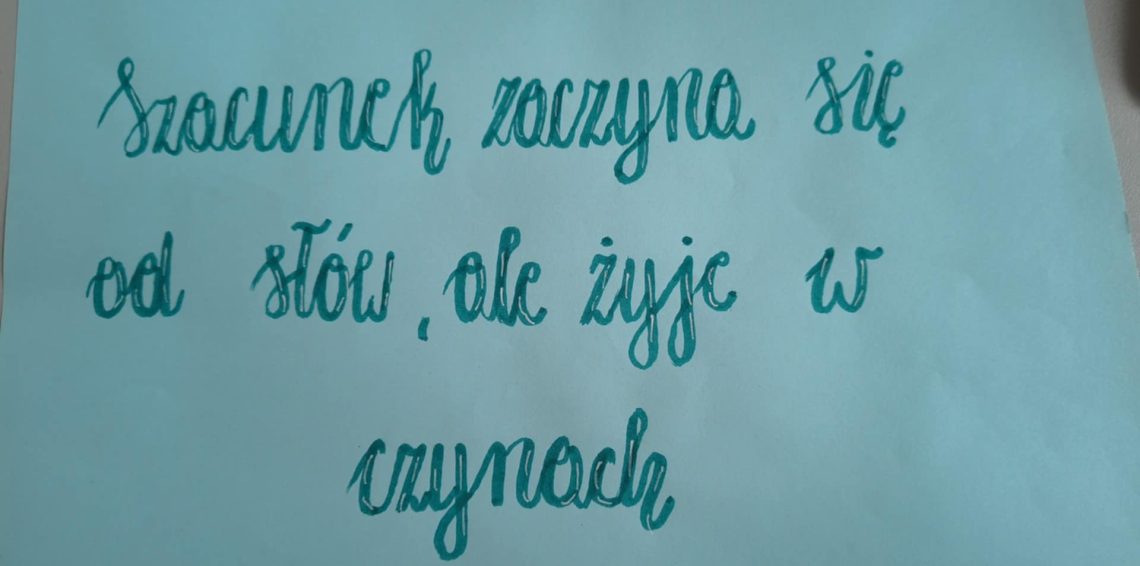 Szacunek zaczyna się
od słów, ale żyje w
czynach